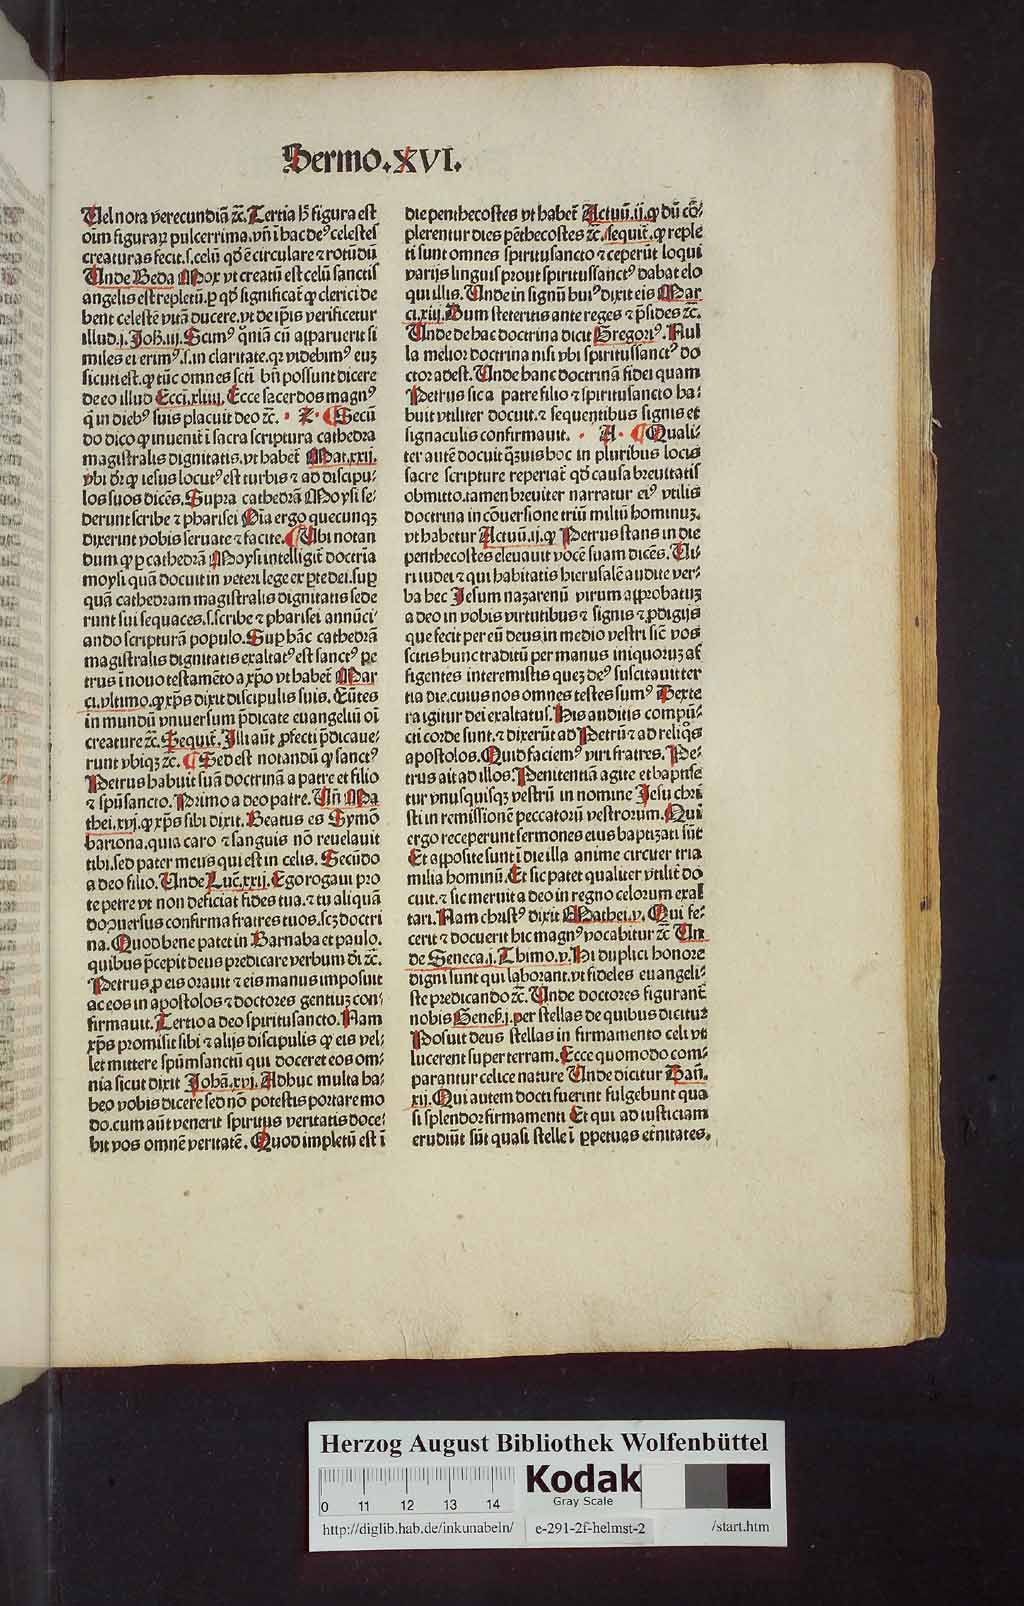 Sermo.XVI.
Uel nota verecundiā ⁊c̄. Tertia h̄ figura est
oim̄ figuraꝝ pulcerrima. vn̄ ī hac deꝰ celestes
creaturas fecit. s. celū qd̓ ē circulare ⁊ rotūdū
Unde Beda Mox vt creatū est celū sanctis
angelis est repletū. ꝑ qd̓ significat̄ ꝙ clerici de
bent celestē vitā ducere. vt de ip̄is verificetur
illud. j. Joh̄. iij. Scimꝰ qm̄iā cū apparuerit si
miles ei erimꝰ. s. in claritate. qꝛ videbimꝰ euꝫ
sicuti est. ꝙ tūc omnes scti bn̄ possunt dicere
de eo illud Ecci. xliiij. Ecce sacerdos magnꝰ
q̄ in diebꝰ suis placuit deo ⁊c̄. · Z · ¶ Secū
do dico ꝙ inuenit̄ ī sacra scriptura cathedra
magistralis dignitatis. vt habet̄ Mat. xxij.
vbi dr̄ ꝙ iesus locutꝰ est turbis ⁊ ad discipu-
los suos dicēs. Supra cathedrā Moysi se-
derunt scribe ⁊ pharisei Oīa ergo quecunqꝫ
dixerint vobis seruate ⁊ facite. ¶ Ubi notan
dum ꝙ ꝑ cathedrā Moysi intelligit̄ doctrīa
moysi quā docuit in veteri lege ex ꝑte dei. suꝑ
quā cathedram magistralis dignitatis sede
runt sui sequaces. s. scribe ⁊ pharisei annūci
ando scripturā populo. Suꝑ hāc cathedrā
magistralis dignitatis exaltatꝰ est sanctꝰ pe
trus ī nouo testamēto a xp̄o vt habet̄ Mar
ci. vltimo. ꝙ xp̄s dixit discipulis suis. Eūtes
in mundū vniuersum p̄dicate euangeliū oī
creature ⁊c̄. Sequit̄. Illi aūt ꝓfecti p̄dicaue-
runt vbiqꝫ ⁊c̄. ¶ Sed est notandū ꝙ sanctꝰ
Petrus habuit suā doctrinā a patre et filio
⁊ spūsancto. Primo a deo patre. Un̄ Ma
thei. xvj. ꝙ xp̄s sibi dixit. Beatus es Symō
bariona. quia caro ⁊ sanguis nō reuelauit
tibi. sed pater meus qui est in celis. Secūdo
a deo filio. Unde Luc̄. xxij. Ego rogaui pro
te petre vt non deficiat fides tua. ⁊ tu aliquā
do ꝯuersus confirma fratres tuos. scꝫ doctri
na. Quod bene patet in Barnaba et paulo.
quibus p̄cepit deus predicare verbum dī ⁊c̄.
Petrus ꝓ eis orauit ⁊ eis manus imposuit
ac eos in apostolos ⁊ doctores gentiuꝫ con-
firmauit. Tertio a deo spiritusancto. Nam
xp̄s promisit sibi ⁊ alijs discipulis ꝙ eis vel-
let mittere spūmsanctū qui doceret eos om-
nia sicut dixit Johā. xvj. Adhuc multa ha-
beo vobis dicere sed nō potestis portare mo
do. cum aūt venerit spiritus veritatis doce-
bit vos omnē veritatē. Quod impletū est ī
die penthecostes vt habet̄ Actuū. ij. ꝙ dū cō-
plerentur dies pēthecostes ⁊c̄. sequit̄. ꝙ reple
ti sunt omnes spiritusancto ⁊ ceperūt loqui
varijs linguis prout spiritussanctꝰ dabat elo
qui illis. Unde in signū huiꝰ dixit eis Mar
ci. xiij. Dum steteritis ante reges ⁊ p̄sides ⁊c̄.
Unde de hac doctrina dicit Gregoriꝰ. Nul
la melior doctrina nisi vbi spiritussanctꝰ do
ctor adest. Unde hanc doctrinā fidei quam
Petrus sic a patre filio ⁊ spiritusancto ha-
buit vtiliter docuit. ⁊ sequentibus signis et
signaculis confirmauit. · A · ¶ Quali-
ter autē docuit qꝫuis hoc in pluribus locis
sacre scripture reperiat̄ qd̓ causa breuitatis
obmitto. tamen breuiter narratur eiꝰ vtilis
doctrina in cōuersione triū miliū hominuꝫ.
vt habetur Actuū. ij. ꝙ Petrus stans in die
penthecostes eleuauit vocē suam dicēs. Ui-
ri iudei ⁊ qui habitatis hierusalē audite ver-
ba hec Jesum nazarenū virum approbatuꝫ
a deo in vobis virtutibus ⁊ signis ⁊ ꝓdigijs
que fecit per eū deus in medio vestri sic̄ vos
scitis hunc traditū per manus iniquoruꝫ af
figentes interemistis queꝫ deꝰ suscitauit ter
tia die. cuius nos omnes testes sumꝰ Dexte
ra igitur dei exaltatus. His auditis compū-
cti corde sunt. ⁊ dixerūt ad Petrū ⁊ ad reliq̄s
apostolos. Quid faciemꝰ viri fratres. Pe-
trus ait ad illos. Penitentiā agite et baptise
tur vnusquisqꝫ vestrū in nomine Jesu chri
sti in remissionē peccatorū vestrorum. Qui
ergo receperunt sermones eius baptizati sūt
Et apposite sunt ī die illa anime circiter tria
milia hominū. Et sic patet qualiter vtilit̄ do
cuit. ⁊ sic meruit a deo in regno celorum exal
tari. Nam christꝰ dixit Mathei. v. Qui fe-
cerit ⁊ docuerit hic magnꝰ vocabitur ⁊c̄ Un
de Seneca. j. Thimo. v. Hi duplici honore
digni sunt qui laborant. vt fideles euangeli-
ste predicando ⁊c̄. Unde doctores figurant̄
nobis Genes̄. j. per stellas de quibus dicitur
Posuit deus stellas in firmamento celi vt
lucerent super terram. Ecce quomodo com-
parantur celice nature Unde dicitur Dan̄.
xij. Qui autem docti fuerint fulgebunt qua
si splendor firmamenti Et qui ad iusticiam
erudiūt sūt quasi stelle ī ꝑpetuas et̄nitates.
Herzog August Bibliothek Wolfenbüttel
0 11 12 13 14
Kodak
Gray Scale
http://diglib.hab.de/inkunabeln/ e-291-2f-helmst-2 /start.htm